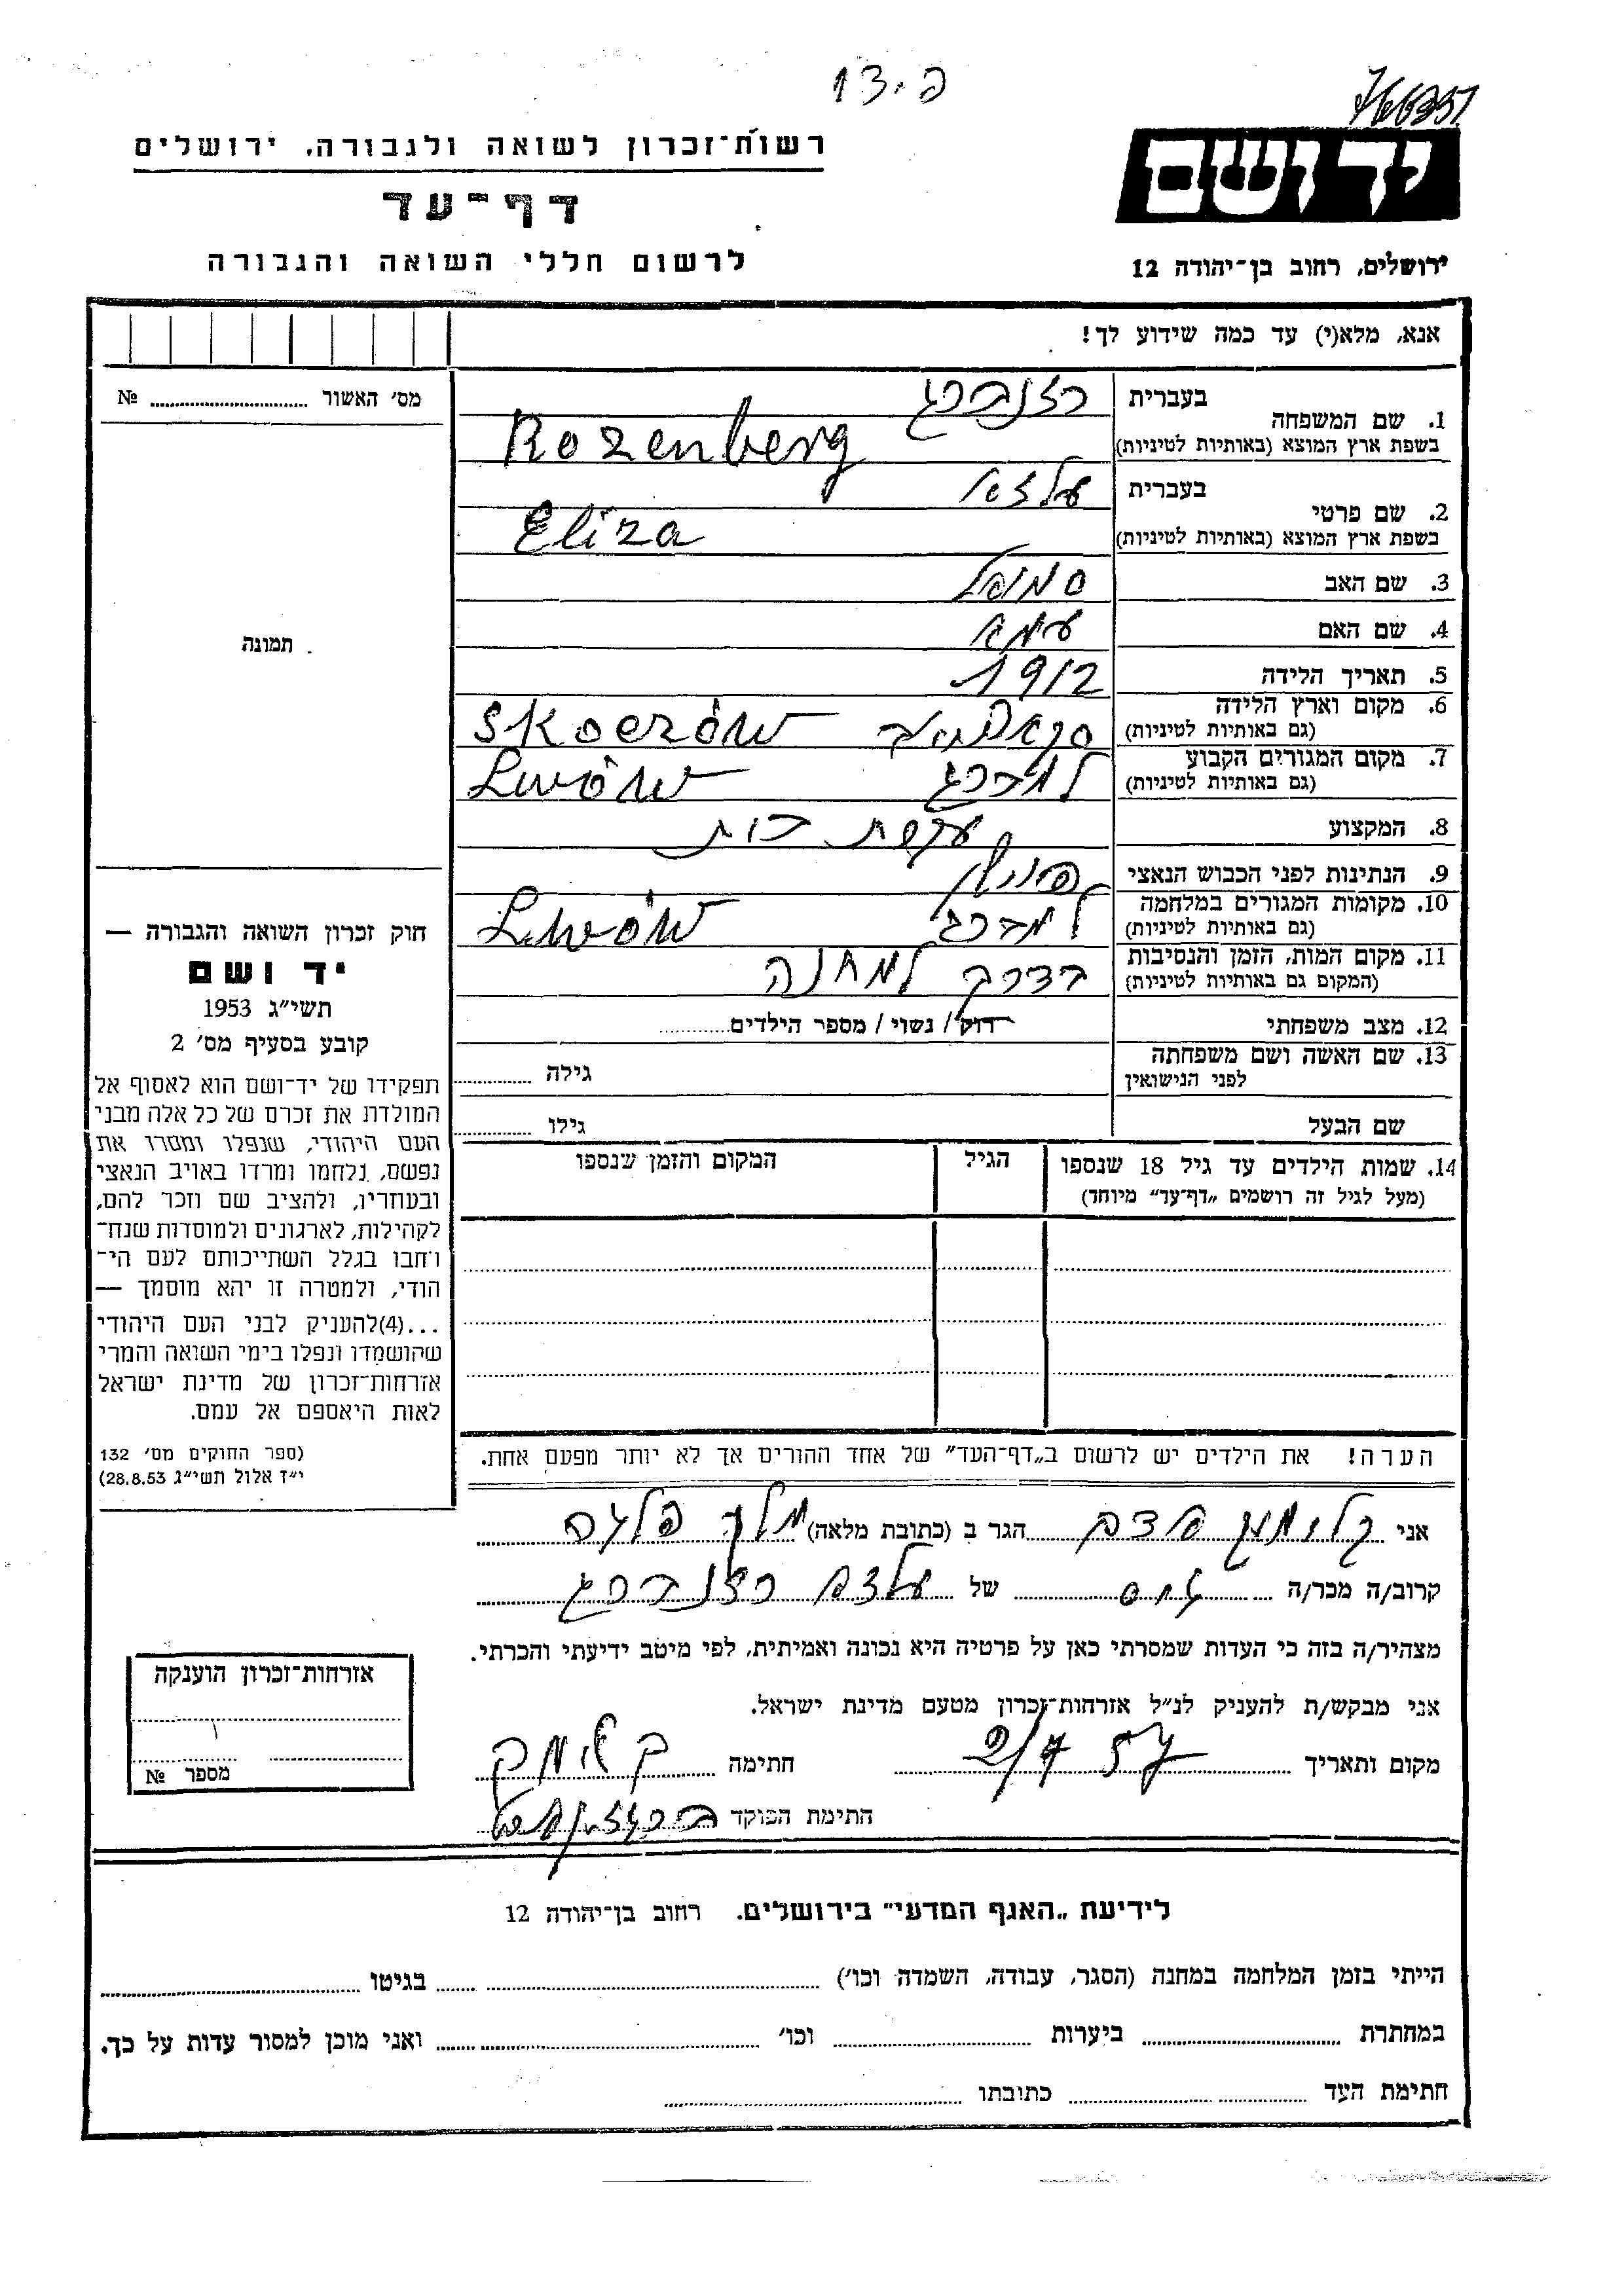 פ. 13
ידושם
ירושלים, רחוב בן־יהודה 12
רשות־זכרון לשואה ולגבורה, ירושלים
דף־עד
לרשום חללי השואה והגבורה
אנא, מלא(י) עד כמה שידוע לך!
מס׳ האשור № ........
תמונה
1. שם המשפחה בעברית רוזנברג
בשפת ארץ המוצא (באותיות לטיניות) Rozenberg
2. שם פרטי בעברית
בשפת ארץ המוצא (באותיות לטיניות) Eliza
3. שם האב סמואל
4. שם האם
5. תאריך הלידה 1912
6. מקום וארץ הלידה
(גם באותיות לטיניות) Skoerów
7. מקום המגורים הקבוע למברג
(גם באותיות לטיניות) Lwów
8. המקצוע עקרת בית
9. הנתינות לפני הכבוש הנאצי פולין
10. מקומות המגורים במלחמה למברג
(גם באותיות לטיניות) Lwów
11. מקום המות, הזמן והנסיבות בדרך למחנה
(המקום גם באותיות לטיניות)
12. מצב משפחתי רוק/ נשוי/ מספר הילדים........
13. שם האשה ושם משפחתה
לפני הנישואין גילה ........
שם הבעל גילו ........
14. שמות הילדים עד גיל 18 שנספו
(מעל לגיל זה רושמים „דף־עד״ מיוחד)
הגיל
המקום והזמן שנספו
הערה! את הילדים יש לרשום ב„דף־העד״ של אחד ההורים אך לא יותר מפעם אחת.
חוק זכרון השואה והגבורה —
יד ושם
תשי״ג 1953
קובע בסעיף מס׳ 2
תפקידו של יד־ושם הוא לאסוף אל
המולדת את זכרם של כל אלה מבני
העם היהודי, שנפלו ומסרו את
נפשם, נלחמו ומרדו באויב הנאצי
ובעוזריו, ולהציב שם וזכר להם,
לקהילות, לארגונים ולמוסדות שנח־
רבו בגלל השתייכותם לעם הי־
הודי, ולמטרה זו יהא מוסמך —
...(4)להעניק לבני העם היהודי
שהושמדו ונפלו בימי השואה והמרי
אזרחות־זכרון של מדינת ישראל
לאות היאספם אל עמם.
(ספר החוקים מס׳ 132
י״ז אלול תשי״ג 28.8.53)
אני הגר ב (כתובת מלאה)
קרוב/ה מכר/ה של רוזנברג
מצהיר/ה בזה כי העדות שמסרתי כאן על פרטיה היא נכונה ואמיתית, לפי מיטב ידיעתי והכרתי.
אני מבקש/ת להעניק לנ״ל אזרחות־זכרון מטעם מדינת ישראל.
מקום ותאריך 2/7 57 חתימה
חתימת הפוקד
אזרחות־זכרון הוענקה
מספר №
לידיעת „האגף המדעי״ בירושלים. רחוב בן־יהודה 12
הייתי בזמן המלחמה במחנה (הסגר, עבודה, השמדה וכו׳) ........ בגיטו ........
במחתרת ........ ביערות ........ וכו׳ ........ ואני מוכן למסור עדות על כך.
חתימת העד ........ כתובתו ........